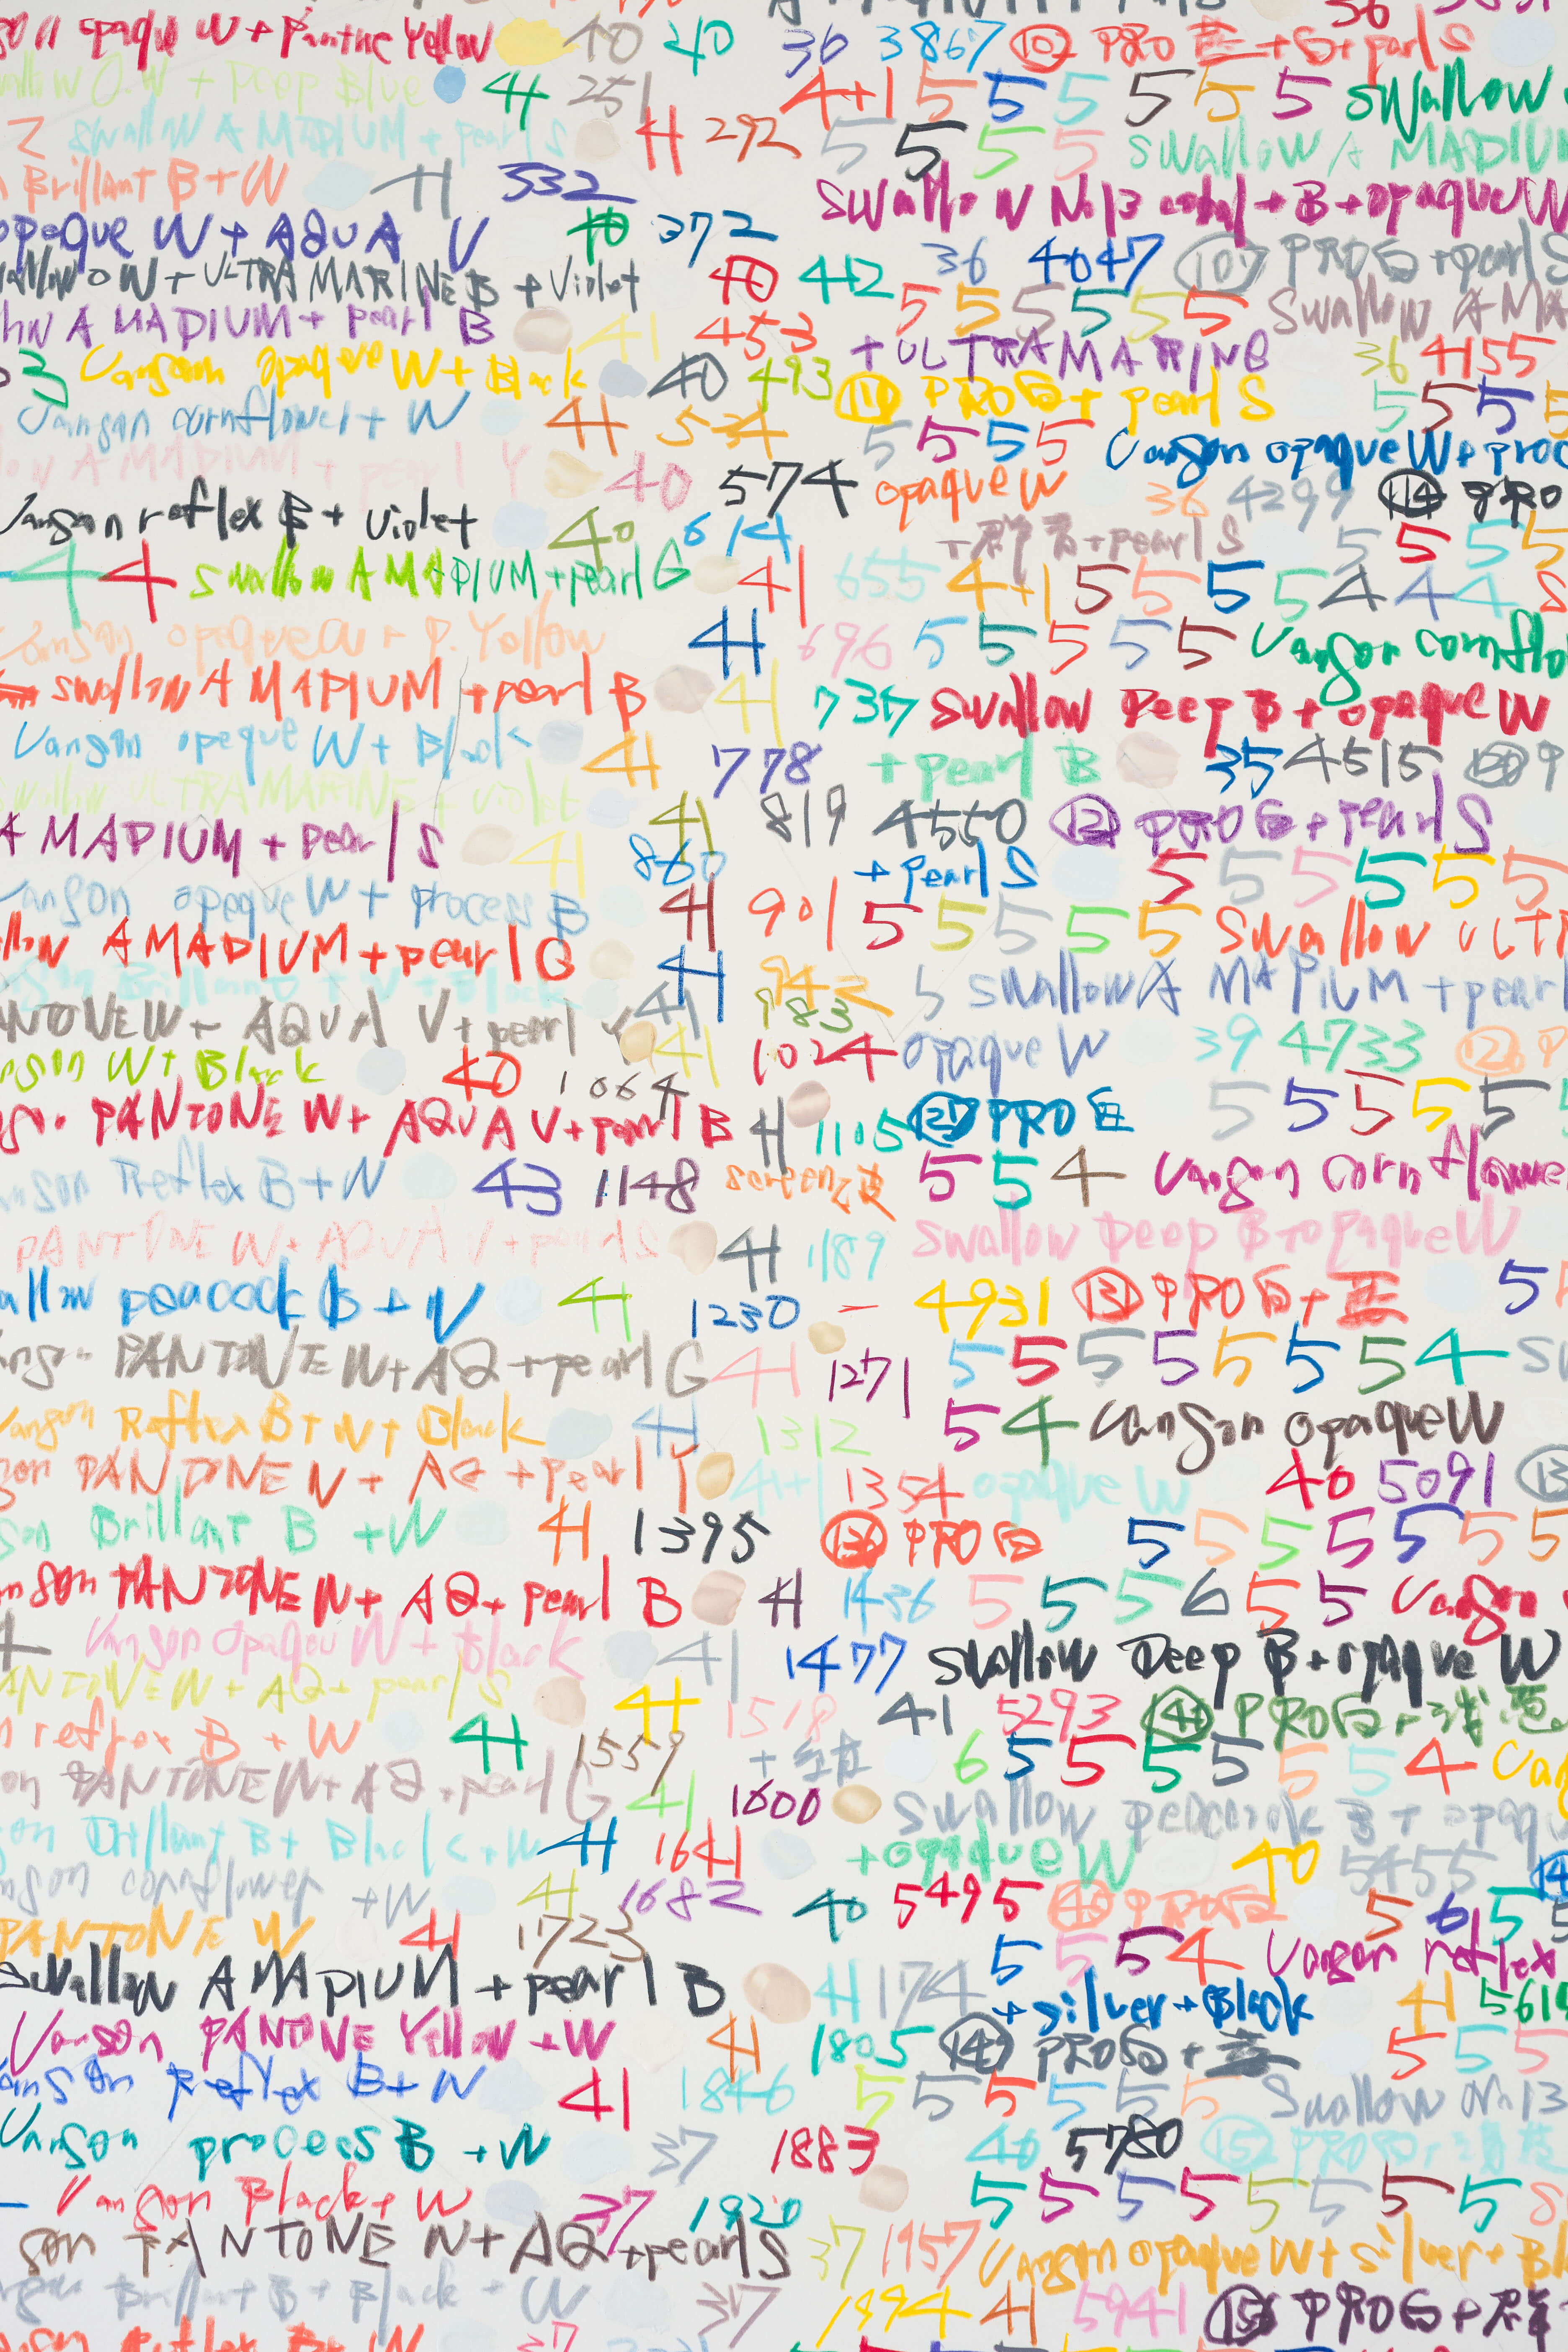 opaque W + Pantone Yellow 40 40 36 3867 102 PRO 藍 + S + pearl S
swallow O.W + Deep Blue 41 251 4+1 5 5 5 5 5 5 swallow
swallow A MADIUM + pearl S 41 292 5 5 5 5 swallow A MADIUM
Brillant B + W 41 332 swallow No.13 cobal + B + opaque W
opaque W + AQUA V 40 372 36 4047 107 PRO白 + pearl S
W + ULTRAMARINE B + Violet 40 412 5 5 5 5 5 5 swallow A MA
A MADIUM + pearl B 41 453 + ULTRAMARINE 36 4155
3 Vanson opaque W + Black 40 493 111 PRO白 + pearl S 5 5 5 5
Vanson cornflower + W 41 534 5 5 5 5 Vanson opaque W + proc
A MADIUM + pearl Y 40 574 opaque W 36 4299 114 PRO
Vanson reflex B + Violet 40 614 + 群青 + pearl S 5 5 5 5
4 4 swallow A MADIUM + pearl G 41 655 4+1 5 5 5 5 4 4 4
Vanson opaque W + P. Yellow 41 696 5 5 5 5 5 Vanson cornflo
swallow A MADIUM + pearl B 41 737 swallow Deep B + opaque W
Vanson opeque W + Black 41 778 + pearl B 35 4515 120 P
swallow ULTRAMARINE + violet 41 819 4550 121 PRO白 + pearl S
A MADIUM + pearl S 41 860 + pearl S 5 5 5 5 5 5
Vanson opeque W + process B 41 901 5 5 5 5 5 swallow ULT
A MADIUM + pearl G 41 942 5 swallow A MADIUM + pearl
Brillant + Black 41 983
PANTONE W + AQUA V + pearl Y 41 1024 opaque W 39 4733 126 P
W + Black 40 1064 5 5 5 5 5
PANTONE W + AQUA V + pearl B 41 1105 127 PRO白
Reflex B + W 43 1148 screen 5 5 4 Vanson cornflowe
PANTONE W + AQUA V + pearl S 41 1189 swallow Deep B + opaque W
peacock B + W 41 1230 - 4931 131 PRO白 + 藍 5
PANTONE W + AQ + pearl G 41 1271 5 5 5 5 5 5 5 4
Vanson Reflex B + W + Black 41 1312 5 4 Vanson opaque W
PANTONE W + AQ + pearl Y 41+1 1354 opaque W 40 5091
Brillant B + W 41 1395 136 PRO白 5 5 5 5 5 5 5
PANTONE W + AQ + pearl B 41 1436 5 5 5 6 5 5 Vanson
Vanson Opaque W + Black 41 1477 swallow Deep B + opaque W
PANTONE W + AQ + pearl S 41 1518 41 5293 141 PRO白 + 浅葱
reflex B + W 41 1559 + 6 5 5 5 5 5 5 4 Van
PANTONE W + AQ + pearl G 41 1600 swallow peacock B + opaqu
Brillant B + Black + W 41 1641 + opaque W 40 5455
cornflower + W 41 1682 40 5495 PRO白 5 6 5 5
PANTONE W 41 1723 5 5 5 4 Vanson reflex
swallow A MADIUM + pearl B 41 174 + silver + Black 41 561
Vanson PANTONE Yellow + W 41 1805 PRO白 + 藍 5 5 5
Reflex B + W 41 1846 5 5 5 5 5 5 swallow No 13
Vanson process B + W 37 1883 40 5780 152 PRO白
Vanson Black + W 37 1920 5 5 5 5 5 5 5 5
PANTONE W + AQ + pearl S 37 1957 Vanson opaque W + silver + Bl
Brillant B + Black + W 37 1994 41 5941 156 PRO白 + 群
Reflex B + W 37